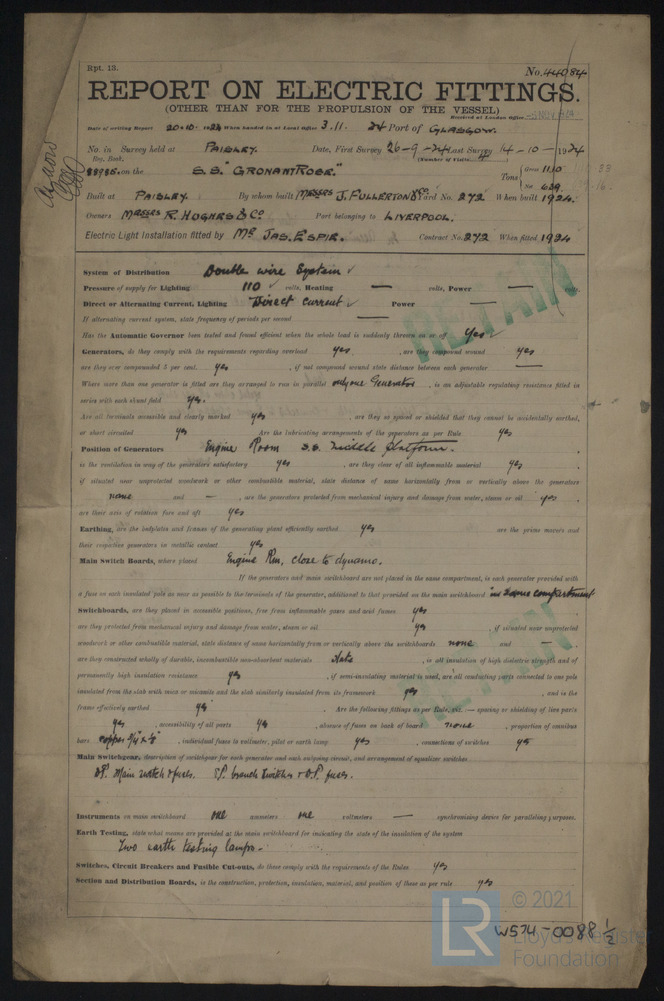 Rpt. 13.
No. 44084
REPORT ON ELECTRIC FITTINGS.
(OTHER THAN FOR THE PROPULSION OF THE VESSEL)
Received at London Office
Date of writing Report 20.10.1924 When handed in at Local Office 3.11.24 Port of GLASGOW.
No. in Survey held at PAISLEY. Date, First Survey 26-9-24 Last Survey 14-10-1924
Reg. Book. (Number of Visits 4)
88985 on the S.S. "GRONANT ROSE." Tons Gross 1110
Net 639
Built at PAISLEY By whom built MESSRS J. FULLERTON & Co. Yard No. 272 When built 1924.
Owners MESSRS R. HUGHES & Co Port belonging to LIVERPOOL.
Electric Light Installation fitted by MR JAS. ESPIE. Contract No. 272 When fitted 1924
System of Distribution Double wire System ✓
Pressure of supply for Lighting 110 ✓ volts, Heating — volts, Power — volts.
Direct or Alternating Current, Lighting Direct current ✓ Power —
If alternating current system, state frequency of periods per second —
Has the Automatic Governor been tested and found efficient when the whole load is suddenly thrown on or off Yes ✓
Generators, do they comply with the requirements regarding overload yes, are they compound wound yes
are they over compounded 5 per cent. yes, if not compound wound state distance between each generator —
Where more than one generator is fitted are they arranged to run in parallel only one Generator, is an adjustable regulating resistance fitted in
series with each shunt field yes.
Are all terminals accessible and clearly marked yes, are they so spaced or shielded that they cannot be accidentally earthed,
or short circuited yes Are the lubricating arrangements of the generators as per Rule yes
Position of Generators Engine Room S.S. Middle platform.
is the ventilation in way of the generators satisfactory yes, are they clear of all inflammable material yes,
if situated near unprotected woodwork or other combustible material, state distance of same horizontally from or vertically above the generators
none and —, are the generators protected from mechanical injury and damage from water, steam or oil yes,
are their axes of rotation fore and aft yes
Earthing, are the bedplates and frames of the generating plant efficiently earthed yes are the prime movers and
their respective generators in metallic contact yes
Main Switch Boards, where placed Engine Rm, close to dynamo.
If the generators and main switchboard are not placed in the same compartment, is each generator provided with
a fuse on each insulated pole as near as possible to the terminals of the generator, additional to that provided on the main switchboard in same compartment
Switchboards, are they placed in accessible positions, free from inflammable gases and acid fumes yes
are they protected from mechanical injury and damage from water, steam or oil yes, if situated near unprotected
woodwork or other combustible material, state distance of same horizontally from or vertically above the switchboards none and —,
are they constructed wholly of durable, incombustible non-absorbent materials slate, is all insulation of high dielectric strength and of
permanently high insulation resistance yes, if semi-insulating material is used, are all conducting parts connected to one pole
insulated from the slab with mica or micanite and the slab similarly insulated from its framework yes, and is the
frame effectively earthed yes. Are the following fittings as per Rule, viz.:— spacing or shielding of live parts
yes, accessibility of all parts yes, absence of fuses on back of board none, proportion of omnibus
bars, individual fuses to voltmeter, pilot or earth lamp yes, connections of switches yes
Main Switchgear, description of switchgear for each generator and each outgoing circuit, and arrangement of equalizer switches
D.P. Main switch & fuses. S.P. branch switches & D.P. fuses.
Instruments on main switchboard one ammeters one voltmeters — synchronising device for paralleling purposes.
Earth Testing, state what means are provided at the main switchboard for indicating the state of the insulation of the system
Two earth testing lamps.
Switches, Circuit Breakers and Fusible Cut-outs, do these comply with the requirements of the Rules yes
Section and Distribution Boards, is the construction, protection, insulation, material, and position of these as per rule yes
RETAIN
RETAIN
© 2021
LR
Lloyd's Register
Foundation
W574-0088 ½